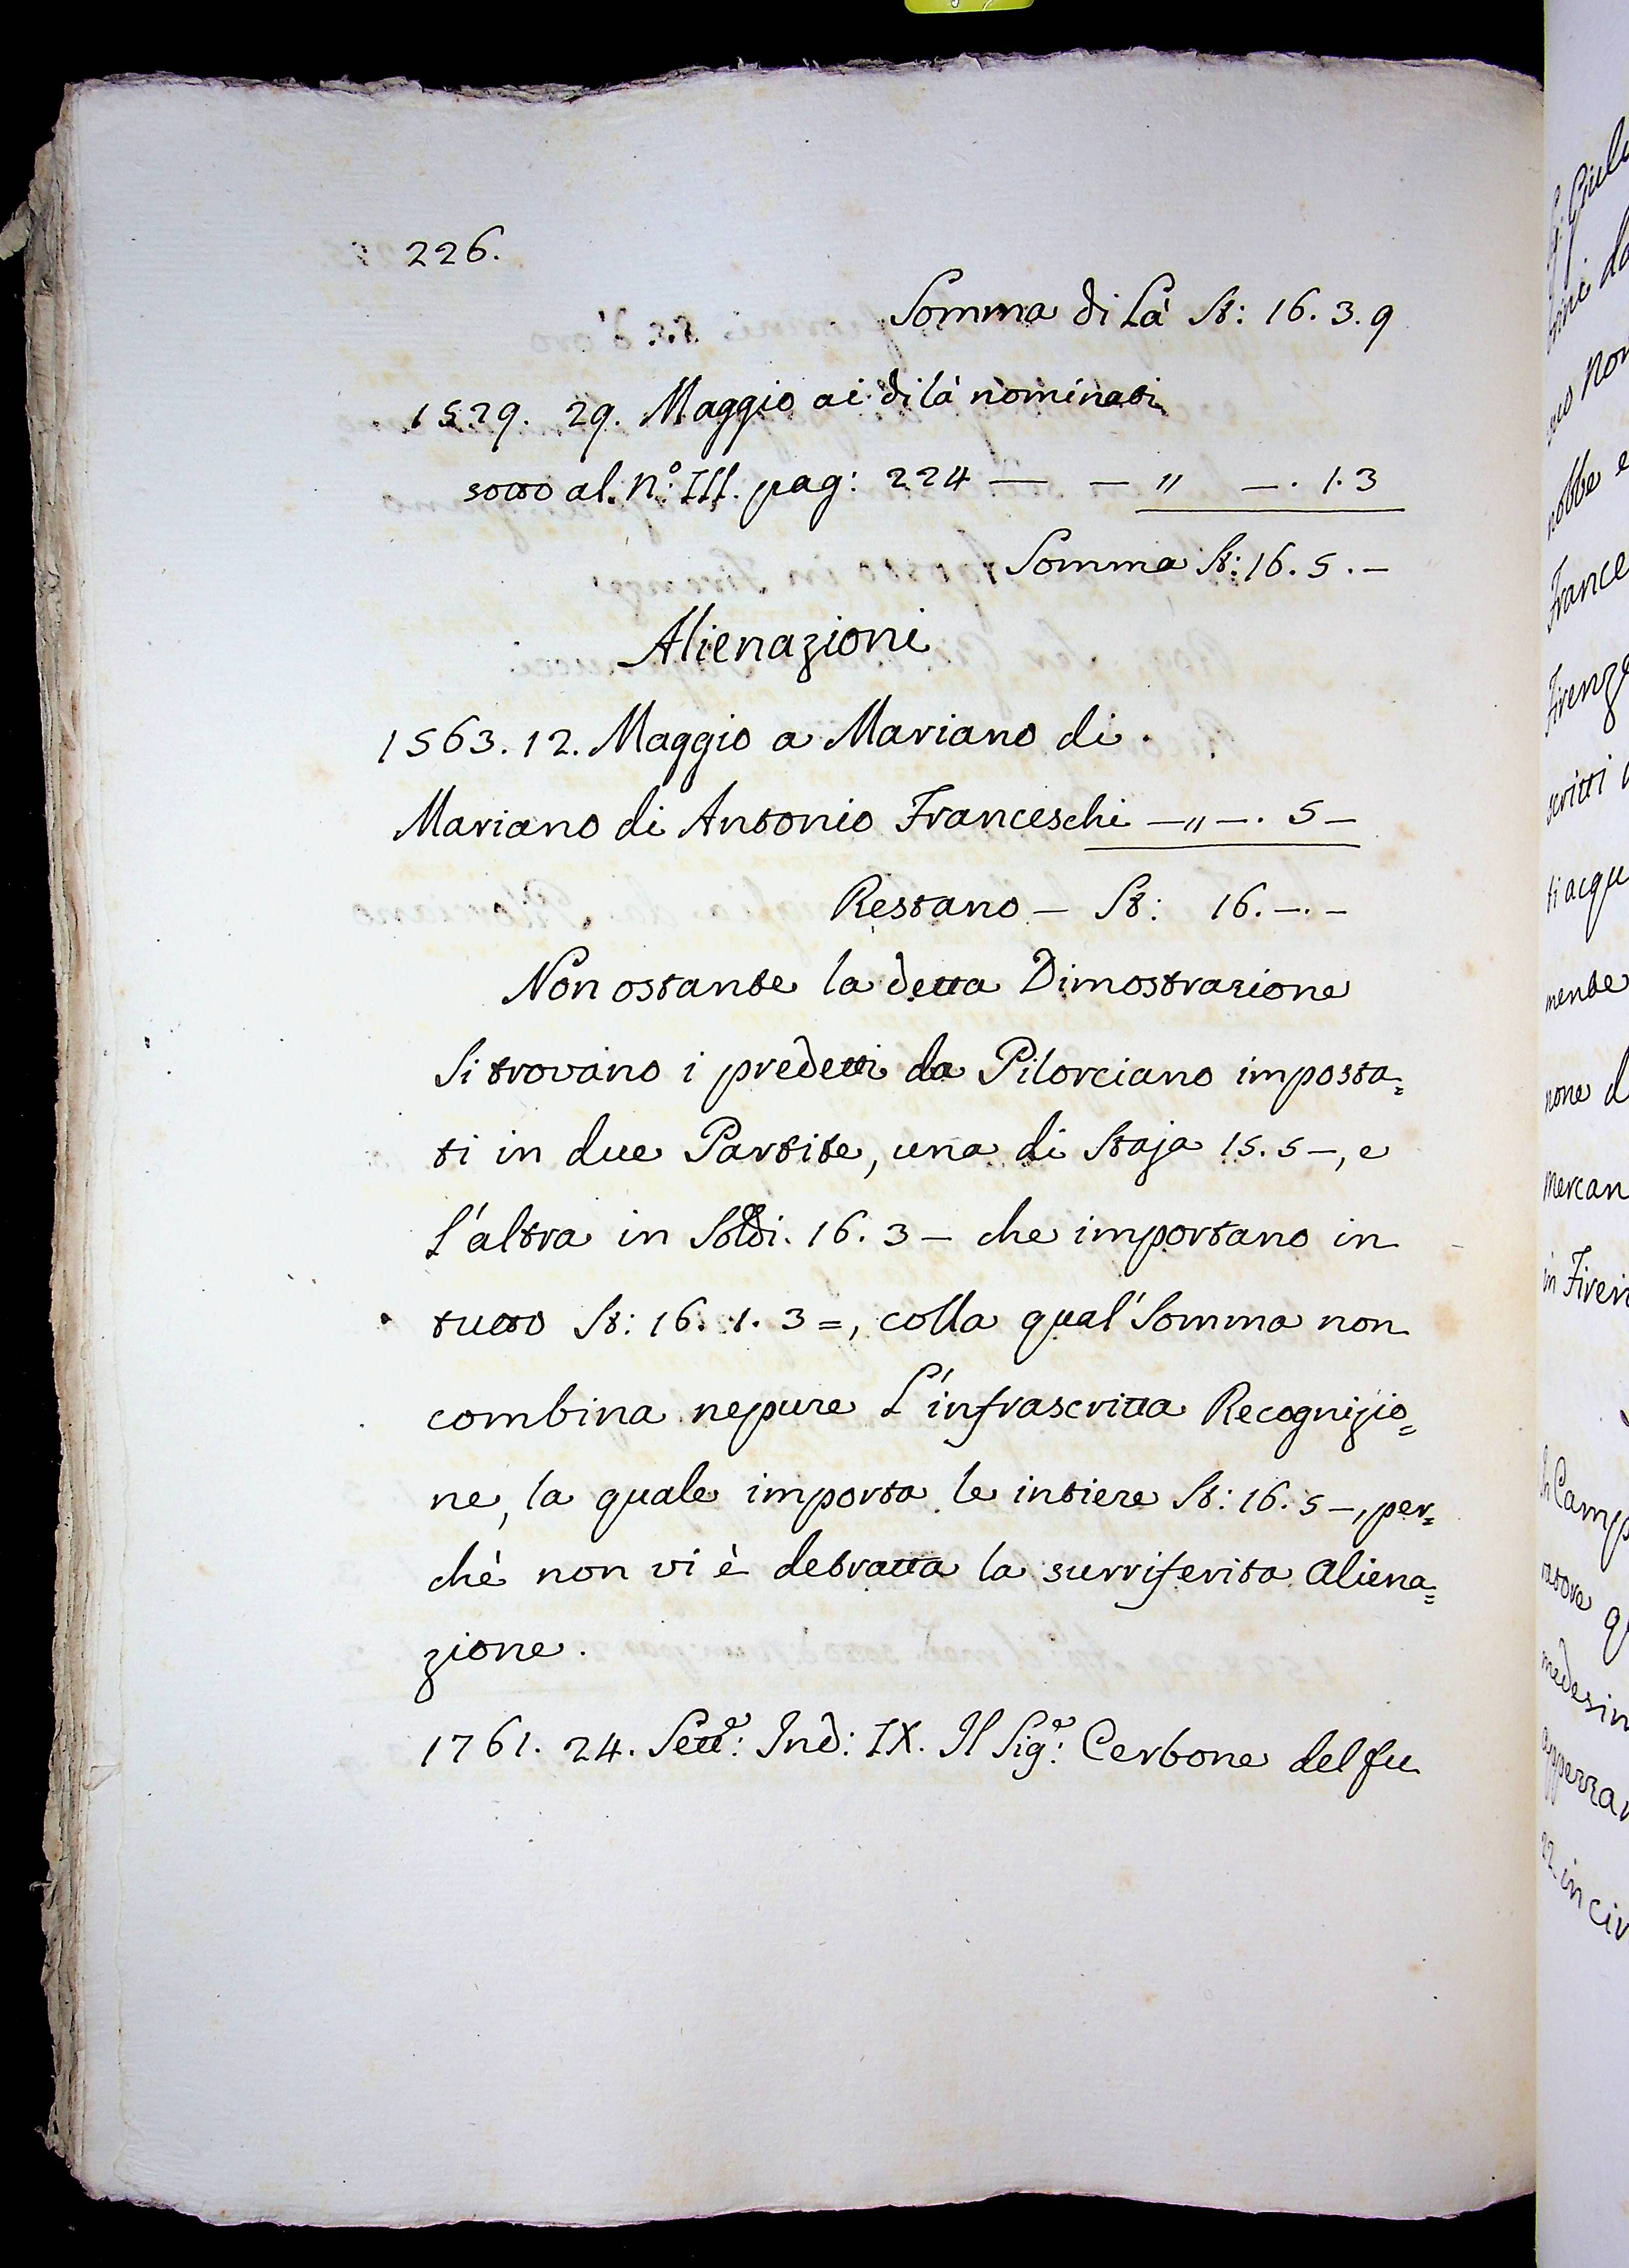 226.
Somma di Là St: 16. 3. 9
1529. 29. Maggio ai di là nominati
sotto al N.° III. pag: 224 — — " —. 1. 3
Somma St: 16. 5. —
Alienazioni
1563. 12. Maggio a Mariano di
Mariano di Antonio Franceschi — " —. 5 —
Restano — St: 16. —. —
Non ostante la detta Dimostrazione
si trovano i predetti da Pilorciano imposta=
ti in due Partite, una di Staja 15. 5 —, e
l'altra in Soldi. 16. 3 — che importano in
tutto St: 16. 1. 3 =, colla qual' Somma non
combina nepure l'infrascritta Recognizio=
ne, la quale importa le intiere St: 16. 5 —, per=
chè non vi è detratta la surriferita Aliena=
zione.
1761. 24. Sett:e Ind: IX. Il Sig:e Cerbone del fu
nobbe e
France
Firenze
scritti
ti acqu
mente
none d
mercan
in Firen
Camp
medesim
in civ